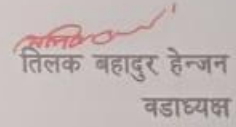 तिलक बहादुर हेन्जन
वडाध्यक्ष